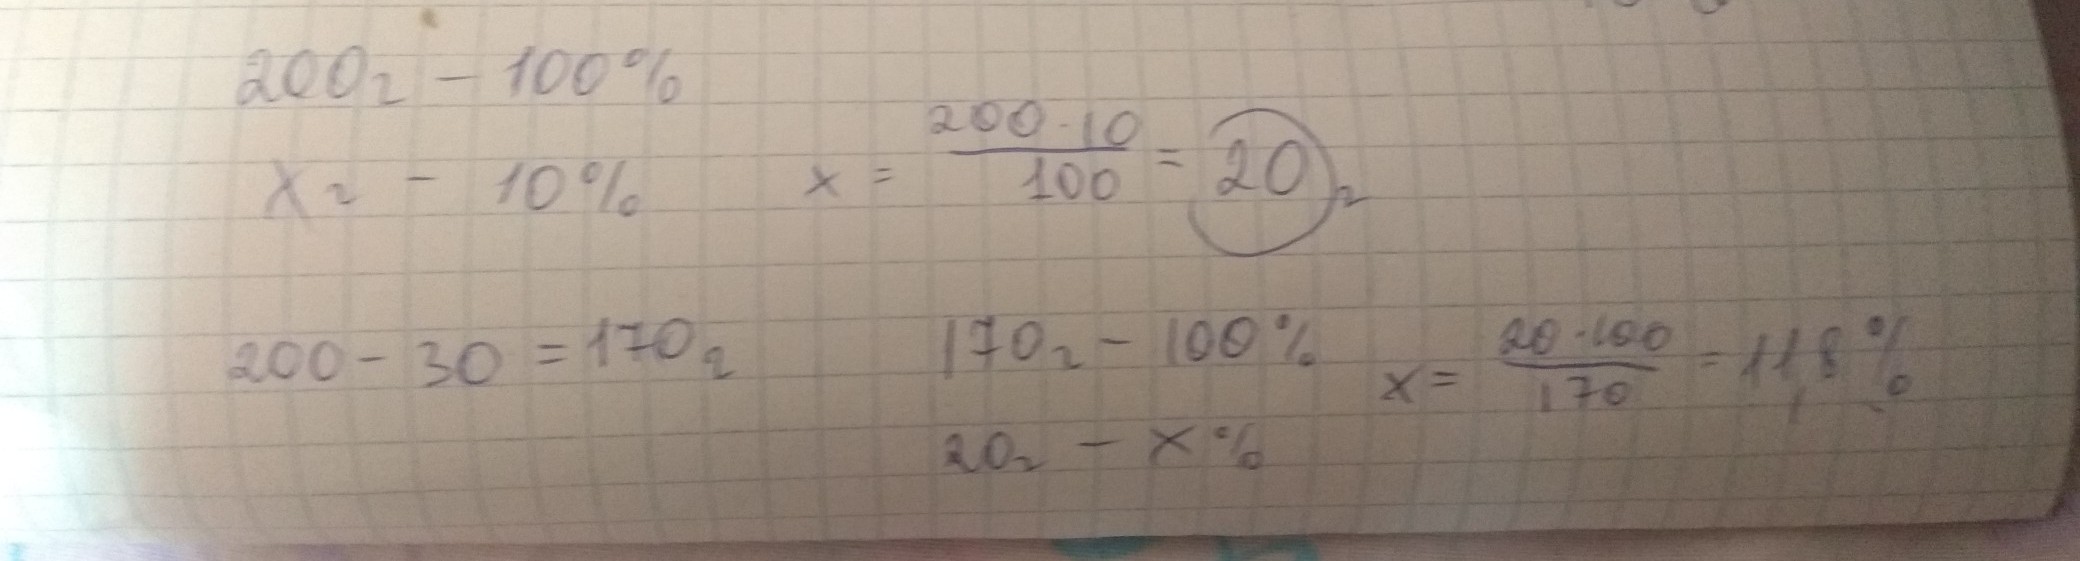 200г - 100%
xг - 10% x = 200·10/100 = 20г
200 - 30 = 170г 170г - 100% x = 20·100/170 = 11,8%
20г - x%